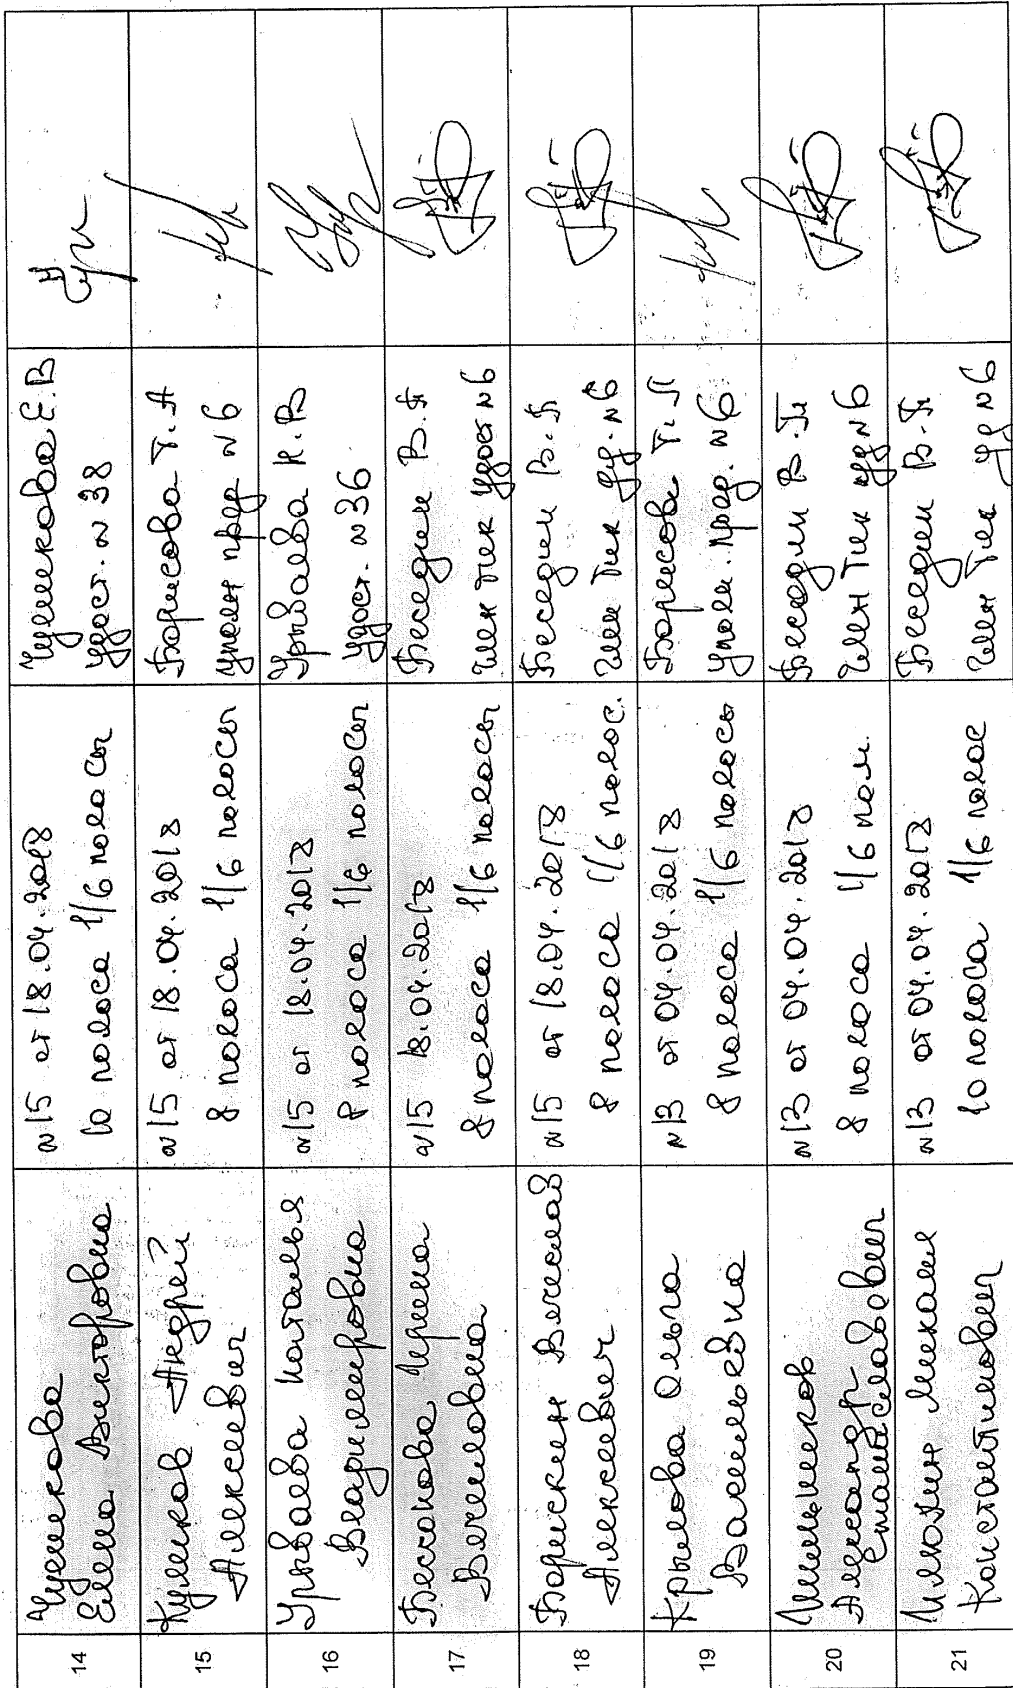 14
Чушкова
Елена Викторовна
№15 от 18.04.2018
10 полоса 1/6 полосы
Чушкова Е.В
удост. №38
15
Куликов Андрей
Алексеевич
№15 от 18.04.2018
8 полоса 1/6 полосы
Борисова Т.А
уполн пред №6
16
Урываева Наталья
Владимировна
№15 от 18.04.2018
8 полоса 1/6 полосы
Урываева Н.В
удост. №36
17
Ирина
№15 18.04.2018
8 полоса 1/6 полосы
Беседин В.П
член тик удост №6
18
Борискин Вячеслав
Алексеевич
№15 от 18.04.2018
8 полоса 1/6 полос.
Беседин В.П
член тик уд. №6
19
Крылова Ольга
Васильевна
№13 от 04.04.2018
8 полоса 1/6 полосы
Борисова Т.
Уполн. пред. №6
20
Александр
Станиславович
№13 от 04.04.2018
8 полоса 1/6 пол.
Беседин В.П
член тик уд №6
21
Илюхин Михаил
Константинович
№13 от 04.04.2018
10 полоса 1/6 полос
Беседин В.П
член тик уд №6